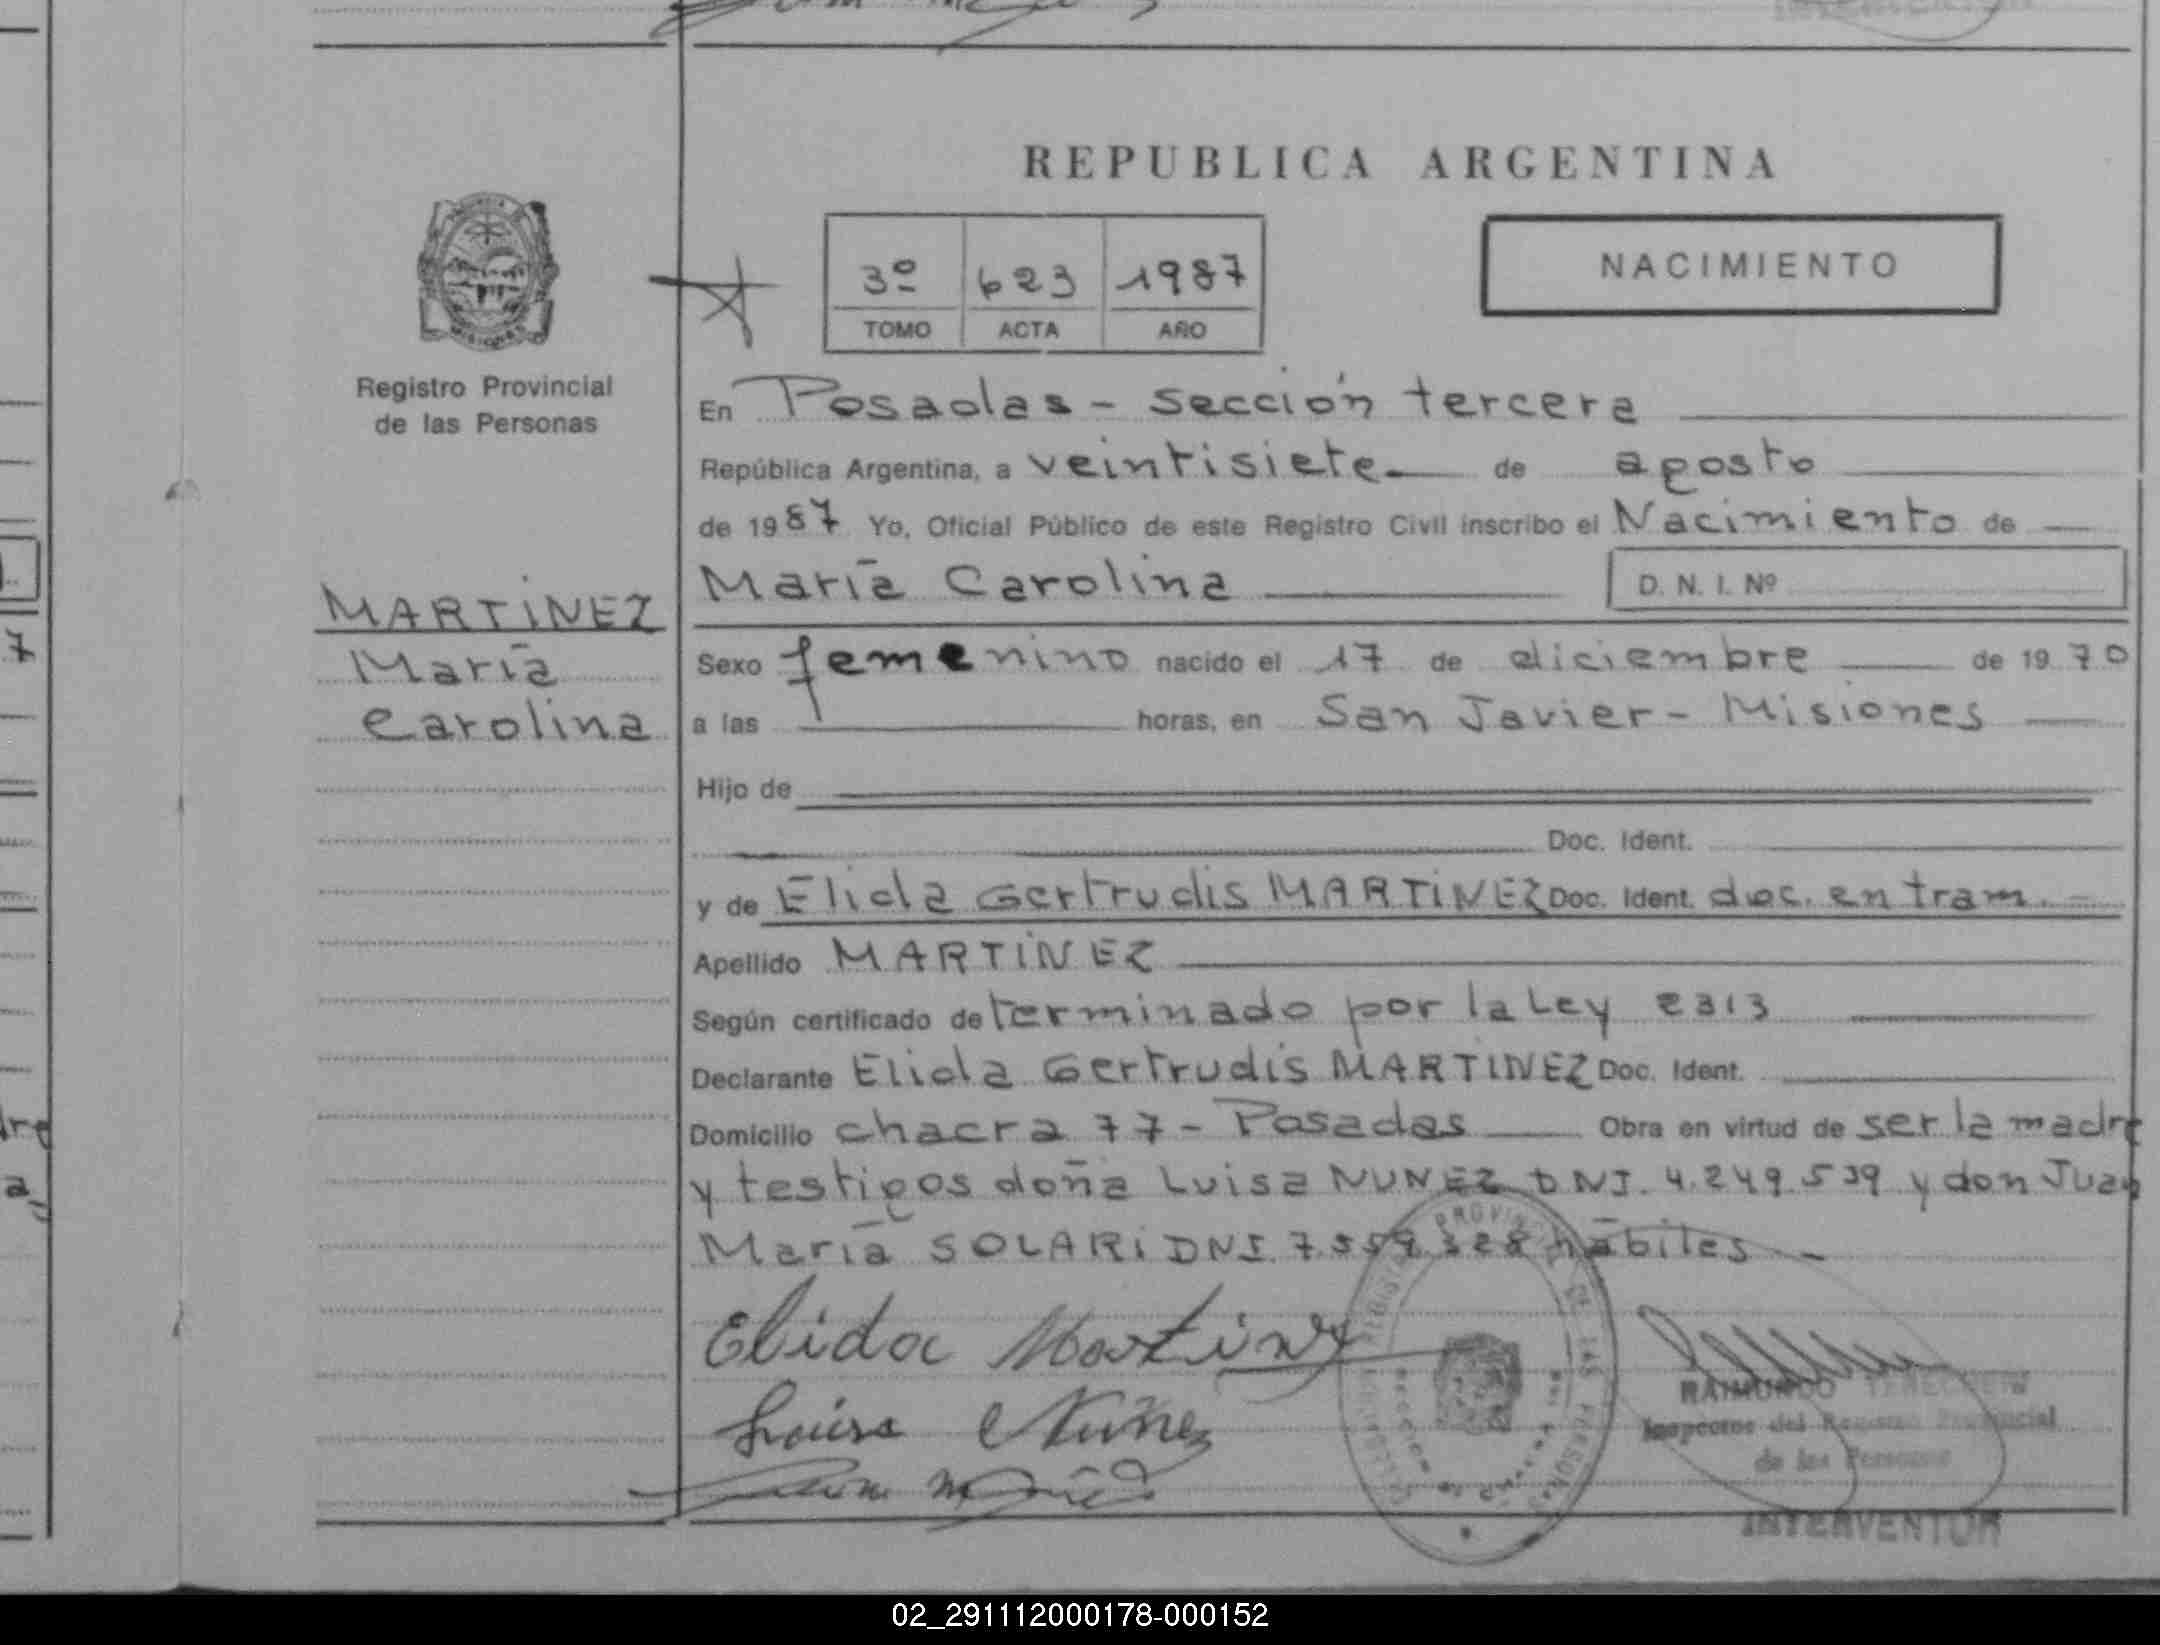 REPUBLICA ARGENTINA
3º 623 1987
TOMO ACTA AÑO
NACIMIENTO
Registro Provincial
de las Personas
MARTINEZ
María
Carolina
En Posadas - sección tercera
República Argentina, a veintisiete de agosto
de 1987 Yo, Oficial Público de este Registro Civil inscribo el Nacimiento de
María Carolina D. N. I. Nº
Sexo femenino nacido el 17 de diciembre de 1970
a las horas, en San Javier - Misiones
Hijo de
Doc. Ident.
y de Elida Gertrudis MARTINEZ Doc. Ident. doc. en tram.
Apellido MARTINEZ
Según certificado determinado por la Ley 2313
Declarante Elida Gertrudis MARTINEZ Doc. Ident.
Domicilio chacra 77 - Posadas Obra en virtud de ser la madre
y testigos doña Luisa NUNEZ DNI. 4.249.539 y don Juan
María SOLARI DNI. 7.559.328 hábiles
Elida Martinez
Luisa Nuñez
RAIMUNDO
Inspector del Registro Provincial
de las Personas
INTERVENTOR
02_291112000178-000152